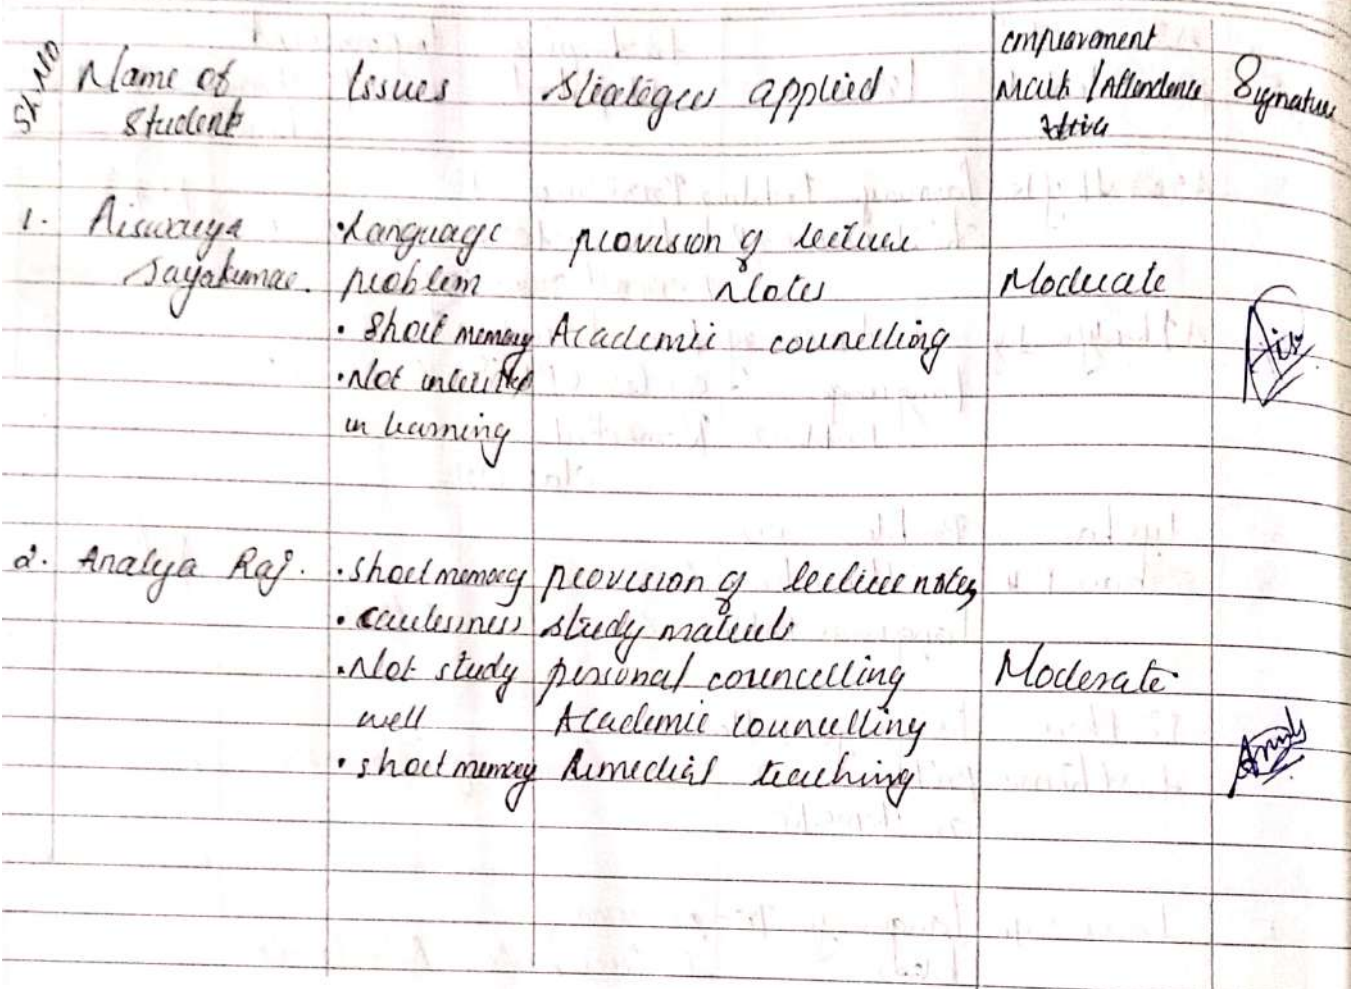 Sl.No
Name of
Student
Issues
Strategies applied
improvement
mark / Attendence
Signature
1. Aiswarya
Jayakumar.
• Language
problem
• Short memory
• Not intrested
in learning
provision of lecture
Notes
Academic counelling
Moderate
Ais
2. Analya Raj.
• short memory
• carelessness
• Not study
well
• short memory
provision of lecture notes,
study materials
personal councelling
Academic councelling
Remedial teaching
Moderate